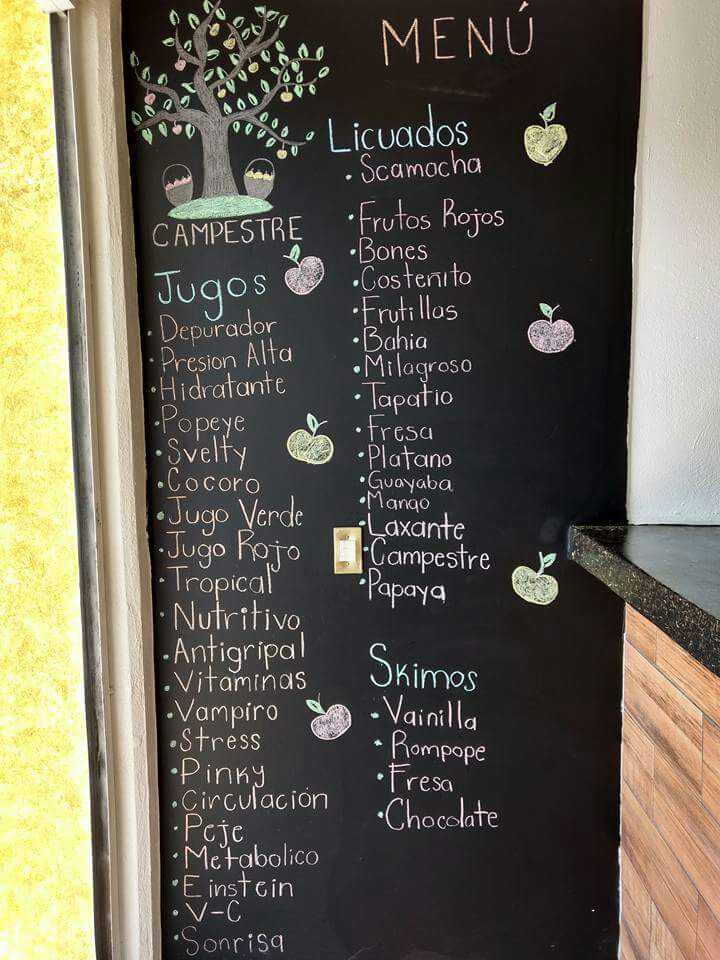 MENÚ
CAMPESTRE
Jugos
• Depurador
• Presion Alta
• Hidratante
• Popeye
• Svelty
• Cocoro
• Jugo Verde
• Jugo Rojo
• Tropical
• Nutritivo
• Antigripal
• Vitaminas
• Vampiro
• Stress
• Pinky
• Circulación
• Peje
• Metabolico
• Einstein
• V-C
• Sonrisa
Licuados
• Scamocha
• Frutos Rojos
• Bones
• Costeñito
• Frutillas
• Bahia
• Milagroso
• Tapatio
• Fresa
• Platano
• Guayaba
• Mango
• Laxante
• Campestre
• Papaya
Skimos
• Vainilla
• Rompope
• Fresa
• Chocolate